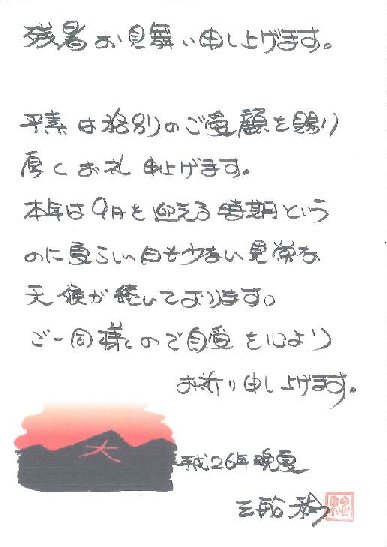 残暑お見舞い申し上げます。
平素は格別のご愛顧を賜り
厚くお礼申上げます。
本年は9月を迎える時期という
のに夏らしい日も少ない異常な
天候が続いております。
ご一同様のご自愛を心より
お祈り申し上げます。
大
平成26年晩夏